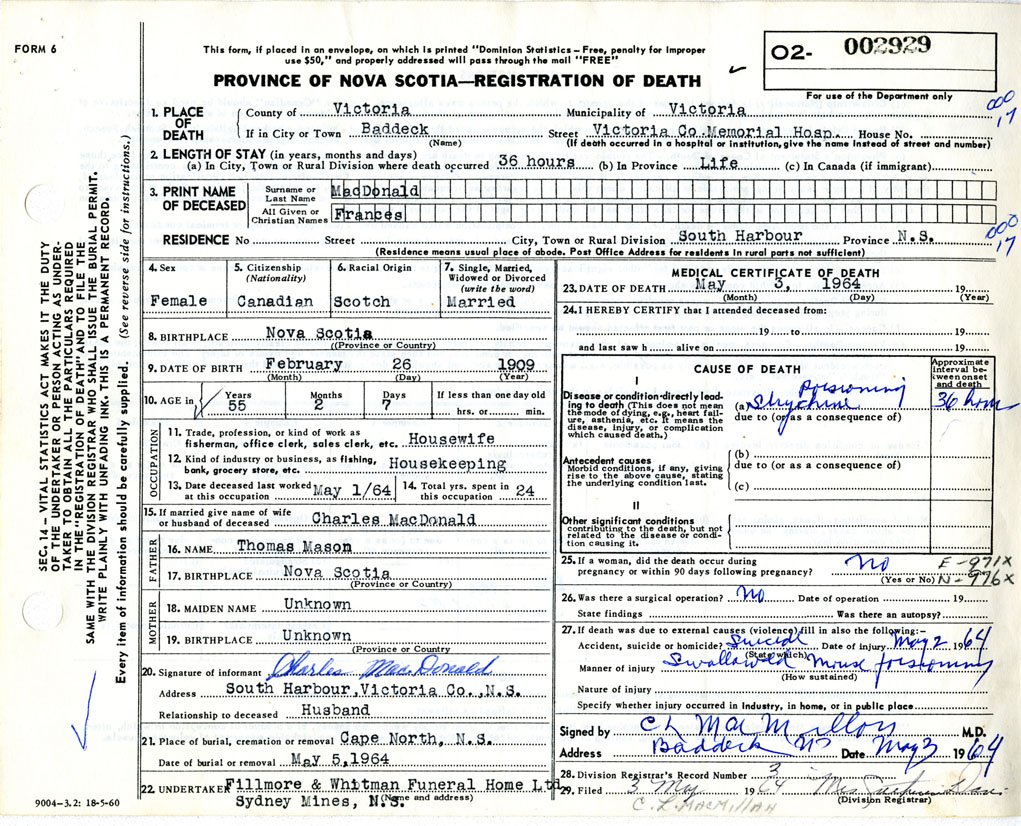 FORM 6
This form, if placed in an envelope, on which is printed "Dominion Statistics – Free, penalty for improper
use $50," and properly addressed will pass through the mail "FREE"
PROVINCE OF NOVA SCOTIA—REGISTRATION OF DEATH
O2- 002929
For use of the Department only
000
17
SEC. 14 – VITAL STATISTICS ACT MAKES IT THE DUTY
OF THE UNDERTAKER OR PERSON ACTING AS UNDER-
TAKER TO OBTAIN ALL THE PARTICULARS REQUIRED
IN THE "REGISTRATION OF DEATH" AND TO FILE THE
SAME WITH THE DIVISION REGISTRAR WHO SHALL ISSUE THE BURIAL PERMIT.
WRITE PLAINLY WITH UNFADING INK. THIS IS A PERMANENT RECORD.
Every item of information should be carefully supplied. (See reverse side for instructions.)
1. PLACE OF DEATH
County of Victoria Municipality of Victoria
If in City or Town Baddeck Street Victoria Co. Memorial Hosp. House No.
(Name) (If death occurred in a hospital or institution, give the name instead of street and number)
2. LENGTH OF STAY (in years, months and days)
(a) In City, Town or Rural Division where death occurred 36 hours (b) In Province Life (c) In Canada (if immigrant)
3. PRINT NAME OF DECEASED
Surname or Last Name MacDonald
All Given or Christian Names Frances
000
17
RESIDENCE No Street City, Town or Rural Division South Harbour Province N.S.
(Residence means usual place of abode. Post Office Address for residents in rural parts not sufficient)
4. Sex Female
5. Citizenship (Nationality) Canadian
6. Racial Origin Scotch
7. Single, Married, Widowed or Divorced (write the word) Married
8. BIRTHPLACE Nova Scotia
((Province or Country)
9. DATE OF BIRTH February 26 1909
(Month) (Day) (Year)
10. AGE in Years 55 Months 2 Days 7 If less than one day old hrs. or min.
OCCUPATION
11. Trade, profession, or kind of work as
fisherman, office clerk, sales clerk, etc. Housewife
12. Kind of industry or business, as fishing,
bank, grocery store, etc. Housekeeping
13. Date deceased last worked at this occupation May 1/64
14. Total yrs. spent in this occupation 24
15. If married give name of wife
or husband of deceased Charles MacDonald
FATHER
16. NAME Thomas Mason
17. BIRTHPLACE Nova Scotia
(Province or Country)
MOTHER
18. MAIDEN NAME Unknown
19. BIRTHPLACE Unknown
(Province or Country)
20. Signature of informant Charles MacDonald
Address South Harbour, Victoria Co., N.S.
Relationship to deceased Husband
21. Place of burial, cremation or removal Cape North, N.S.
Date of burial or removal May 5, 1964
22. UNDERTAKER Fillmore & Whitman Funeral Home Ltd
Sydney Mines, N.S. (Name and address)
9004–3.2: 18-5-60
MEDICAL CERTIFICATE OF DEATH
23. DATE OF DEATH May 3, 1964 19
(Month) (Day) (Year)
24. I HEREBY CERTIFY that I attended deceased from:
19 to 19
and last saw h alive on 19
CAUSE OF DEATH
Approximate interval between onset and death
I
Disease or condition directly lead-
ing to death (This does not mean
the mode of dying, e.g., heart fail-
ure, asthenia, etc. It means the
disease, injury, or complication
which caused death.)
(a) Strychnine poisoning 36 hours
due to (or as a consequence of)
Antecedent causes
Morbid conditions, if any, giving
rise to the above cause, stating
the underlying condition last.
(b)
due to (or as a consequence of)
(c)
II
Other significant conditions
contributing to the death, but not
related to the disease or condi-
tion causing it.
25. If a woman, did the death occur during
pregnancy or within 90 days following pregnancy? No
(Yes or No)
E-971X
N-976X
26. Was there a surgical operation? No Date of operation 19
State findings Was there an autopsy?
27. If death was due to external causes (violence) fill in also the following:–
Accident, suicide or homicide? Suicide Date of injury May 2 1964
(State which)
Manner of injury Swallowed mouse poisoning
(How sustained)
Nature of injury
Specify whether injury occurred in industry, in home, or in public place
Signed by C L MacMillan M.D.
Address Baddeck NS Date May 3 1964
28. Division Registrar's Record Number 3
29. Filed 3 May 1964 Mrs
(Division Registrar)
C. L. MACMILLAN